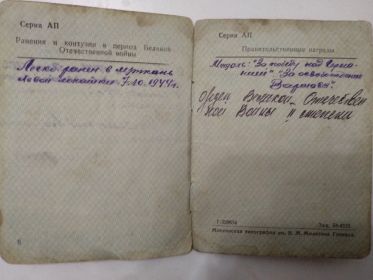 Серия АП
Ранения и контузии в период Великой
Отечественной войны
Легко ранен в мягк. ткань
левой лопатки 7.10.1944 г.
6
Серия АП
Правительственные награды
Медаль: "За победу над Герма-
нией" "За освобождение
Варшавы".
Орден Великой Отечествен
ной Войны II степени